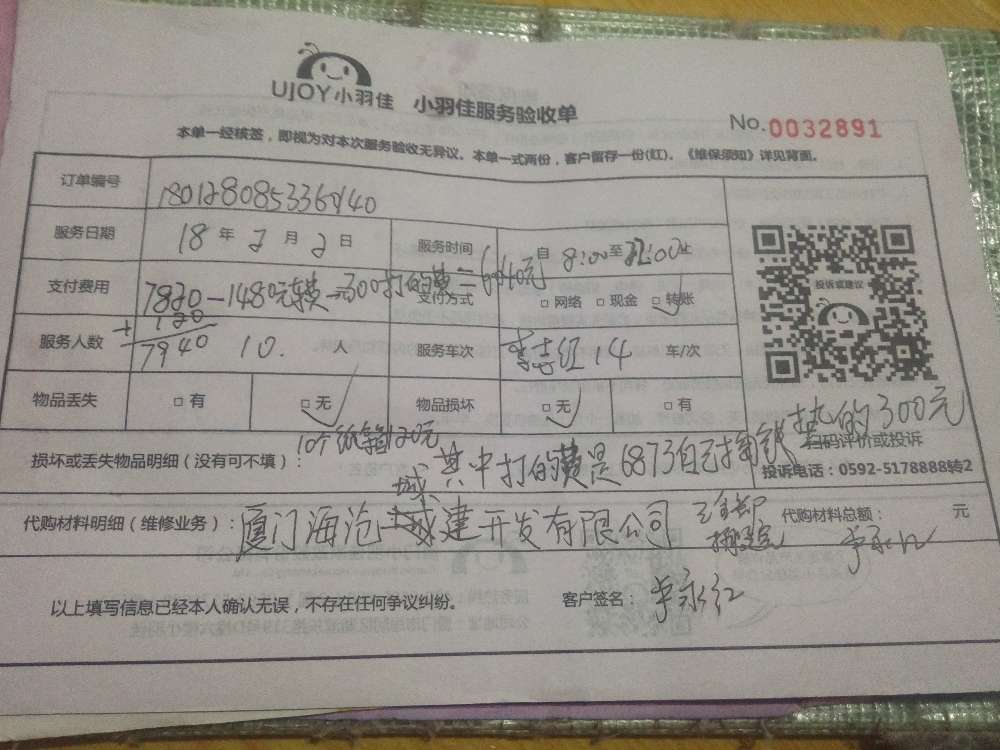 UJOY小羽佳 小羽佳服务验收单
No.0032891
本单一经核签，即视为对本次服务验收无异议。本单一式两份，客户留存一份(红)。《维保须知》详见背面。
订单编号
服务日期 18 年 2 月 2 日 服务时间 自 8:00 至 22:00 止
支付费用 7820-1480元 -300打的费= 支付方式 □网络 □现金 □转账
+120
7940
服务人数 10. 人 服务车次 14 车/次
物品丢失 □有 □无 物品损坏 □无 □有
投诉或建议
扫码评价或投诉
投诉电话：0592-5178888转2
10个纸箱120元
损坏或丢失物品明细（没有可不填）： 其中打的费是 的300元
城
代购材料明细（维修业务）： 厦门海沧城建开发有限公司 代购材料总额： 元
以上填写信息已经本人确认无误，不存在任何争议纠纷。 客户签名：